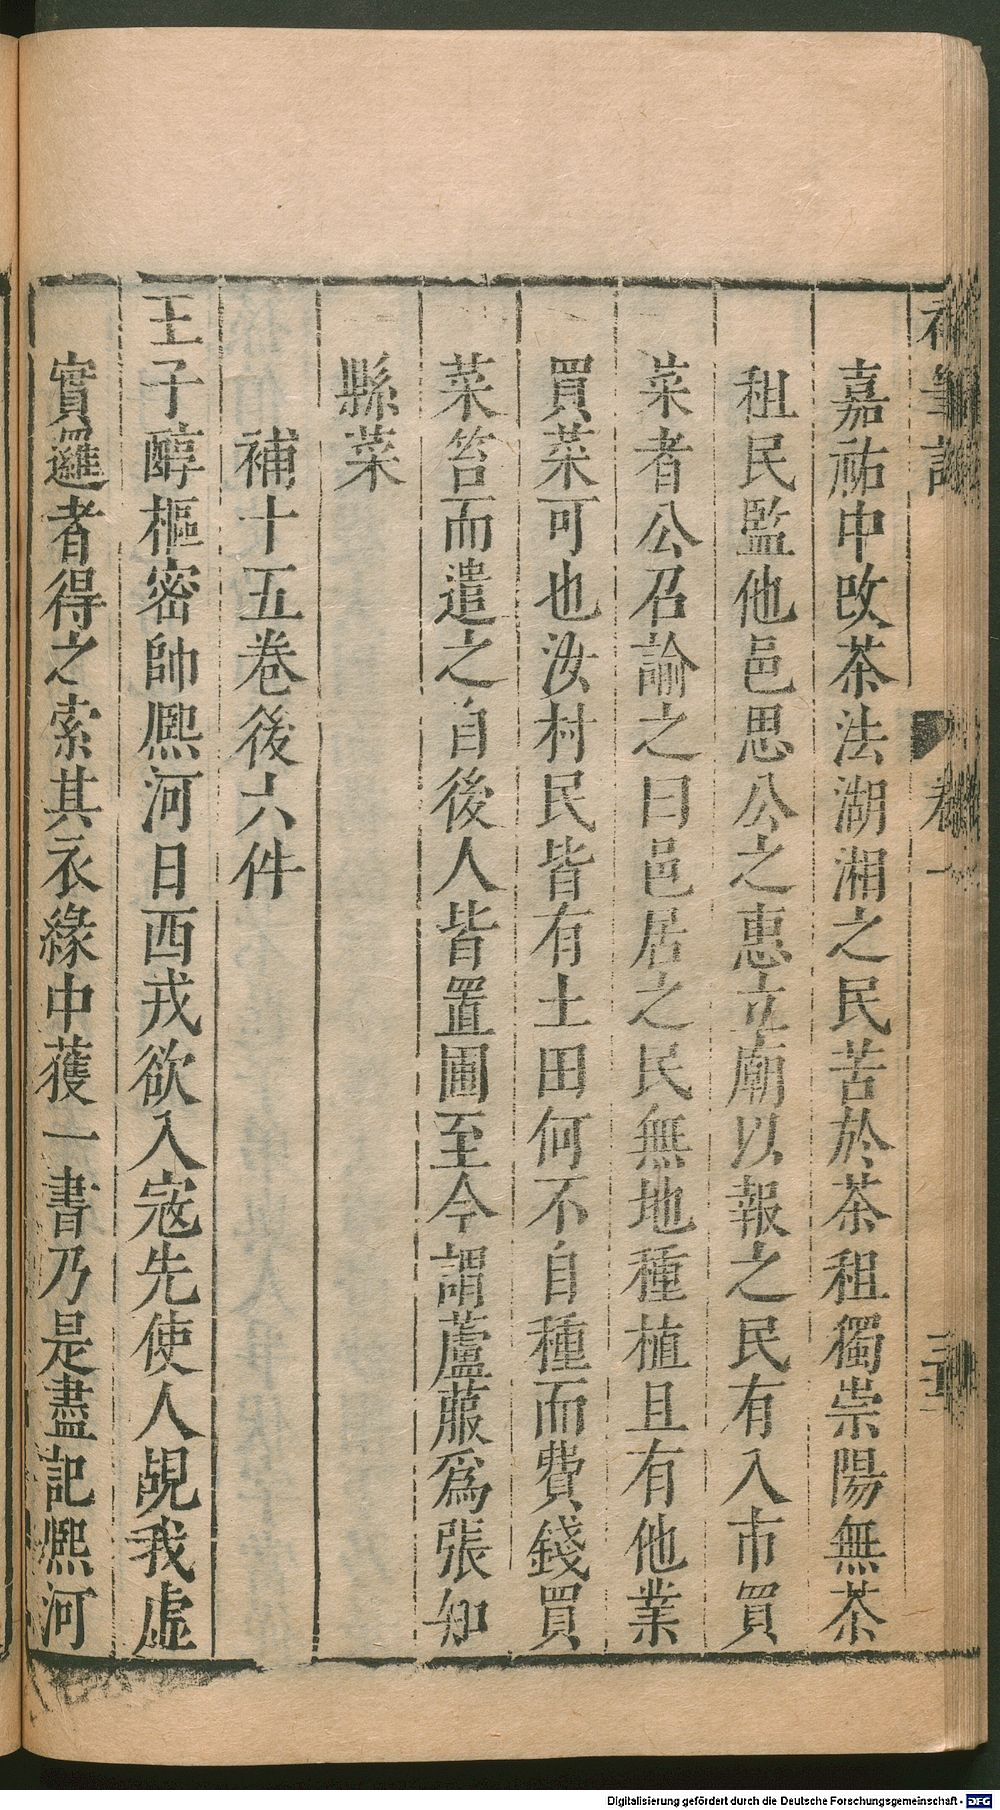 嘉祐中改茶法湖湘之民苦於茶租獨崇陽無茶
租民監他邑思公之惠立廟以報之民有入市買
菜者公召諭之曰邑居之民無地種植且有他業
買菜可也汝村民皆有土田何不自種而費錢買
菜笞而遣之自後人皆置圃至今謂蘆菔爲張知
縣菜
補十五卷後六件
王子醇樞密帥熈河日西戎欲入寇先使人覘我虛
實邏者得之索其衣緣中獲一書乃是盡記熈河
卷一
Digitalisierung gefördert durch die Deutsche Forschungsgemeinschaft - DFG